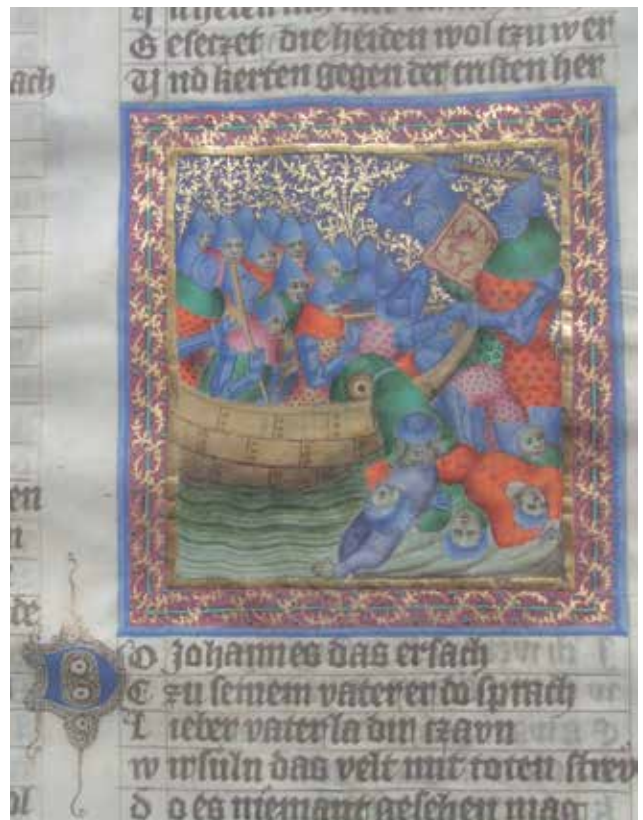 ach
G eseczet die heiden wol tzu wer
U nd kerten gegen der cristen her
en
n
de
ol
D o Johannes das ersach
C zu seinem vater er do sprach
L ieber vater la din tzavn
w ir suln das velt mit toten
d o es niemant gesehen mag